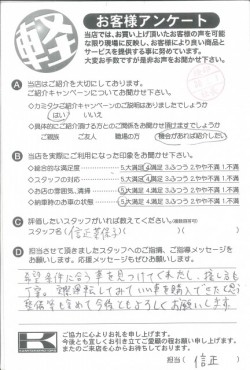 軽
お客様アンケート
当店では、お買い上げ頂いたお客様の声を可能
な限り現場に反映し、お客様により良い商品と
サービスを提供する事に努めています。
大変お手数ですが是非お声をお聞かせ下さい。
A 当店はご紹介を大切にしております。
ご紹介キャンペーンについてお聞かせ下さい。
◇カミタケご紹介キャンペーンのご説明はありましたでしょうか
はい いいえ
◇具体的にご紹介頂ける方とのご関係をお聞かせ頂けますでしょうか
ご親族 ご友人 職場の方 機会があれば紹介したい
B 当店を実際にご利用になった印象をお聞かせ下さい。
◇総合的な満足度 5.大満足 4.満足 3.ふつう 2.やや不満 1.不満
◇スタッフの対応 5.大満足 4.満足 3.ふつう 2.やや不満 1.不満
◇お店の雰囲気、清掃 5.大満足 4.満足 3.ふつう 2.やや不満 1.不満
◇納車時のお車の状態 5.大満足 4.満足 3.ふつう 2.やや不満 1.不満
C 評価したいスタッフがいれば教えてください。(複数回答可)
スタッフ名( 信正 )
D 担当させて頂きましたスタッフへのご指摘、ご指導メッセージを
お願いします。応援メッセージもぜひお願いします。
希望条件に合う車を見つけてくれたし、
整備等も含めて今後ともよろしくお願いします
ご協力に心よりお礼を申し上げます。
今後とも宜しくお引き立てご愛顧の程お願い申し上げます。
またのご来店を心からお待ちしております。
担当( 信正 )